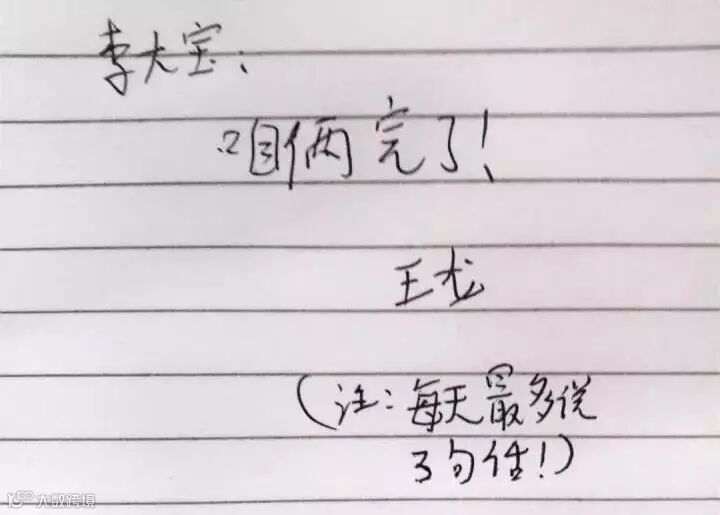 李大宝：
咱俩完了！
王龙
（注：每天最多说
3句话！）
大数跨境